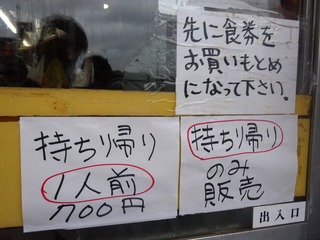 先に食券を
お買いもとめ
になって下さい。
持ち帰り
1人前
700円
持ち帰り
のみ
販売
出入口